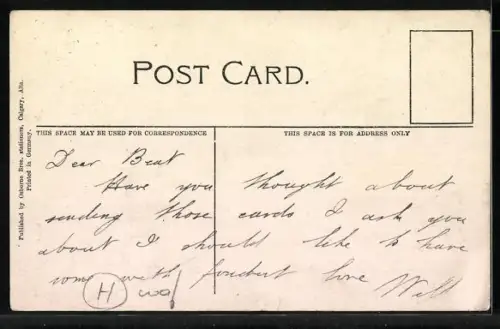 POST CARD.
THIS SPACE MAY BE USED FOR CORRESPONDENCE
THIS SPACE IS FOR ADDRESS ONLY
Published by Osborne Bros. stationers, Calgary, Alta.
Printed in Germany.
Dear Beat
Have you thought about
sending those cards I ask you
about I should like to have
some with fondest love Will
H